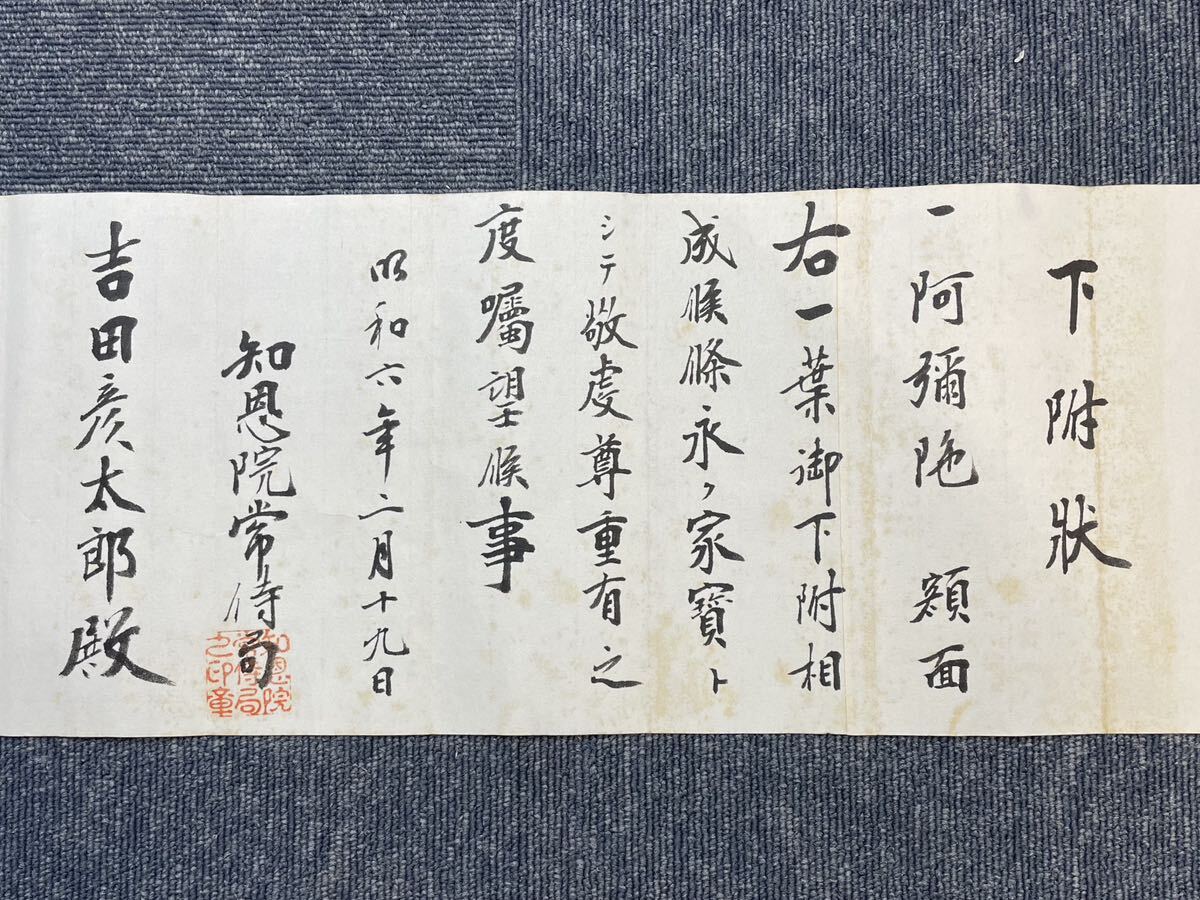 下附狀
一 阿彌陁 額面
右一葉御下附相
成候條永々家寶ト
シテ敬虔尊重有之
度囑望候事
昭和六年二月十九日
知恩院常侍局
知恩院
常侍局
之印章
吉田彦太郎殿